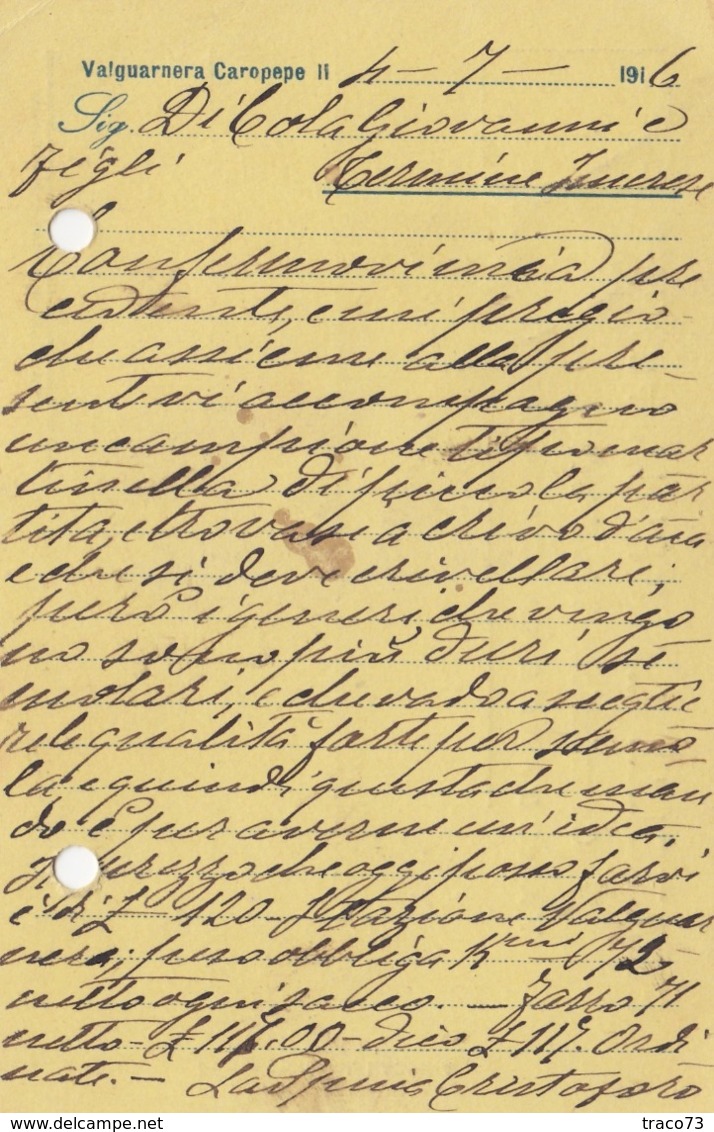 Valguarnera Caropepe li 4 - 7 - 1916
Sig. Di Cola Giovanni e
figli Termine Imerese
Confermovi mia pre
cedente, e mi pregio
che assieme alla pre-
sente vi accompagno
un campione tipo mar
tinella di piccola par
tita, e trovasi a crivo d'aia
e che si deve crivellare;
però i generi che vingo
no sono più duri se
molari, e che vado a sceglie
re le qualità forte per semo
la e quindi questa che man
do è per averne un'idea.
Il prezzo che oggi posso farvi
è di £ 120 - Stazione Valguar
nera; peso obbliga K.mi 72
netto ogni sacco. - Farro 71
netto - £ 117.00 - dico £ 117. Ordi
nate. - La Spina Cristoforo
traco73